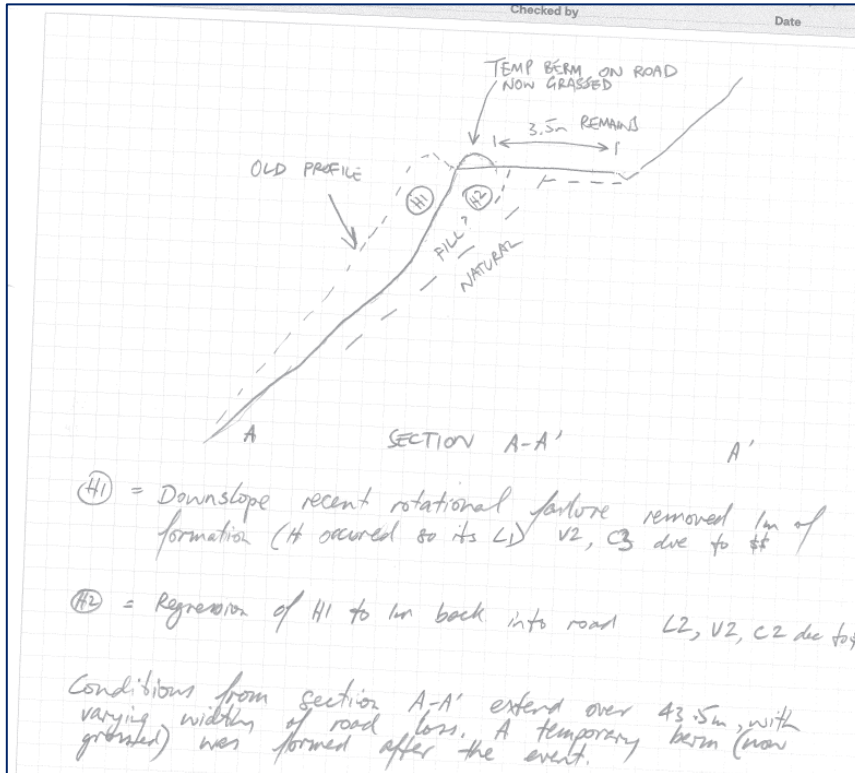 Checked by
Date
TEMP BERM ON ROAD
NOW GRASSED
3.5m REMAINS
OLD PROFILE
H1
H2
FILL?
NATURAL
A
SECTION A-A'
A'
H1 = Downslope recent rotational failure removed 1m of
formation (H occured so its L1) V2, C3 due to $$
H2 = Regression of H1 to 1m back into road L2, V2, C2 due to $
Conditions from section A-A' extend over 43.5m, with
varying widths of road loss. A temporary berm (now
) was formed after the event.